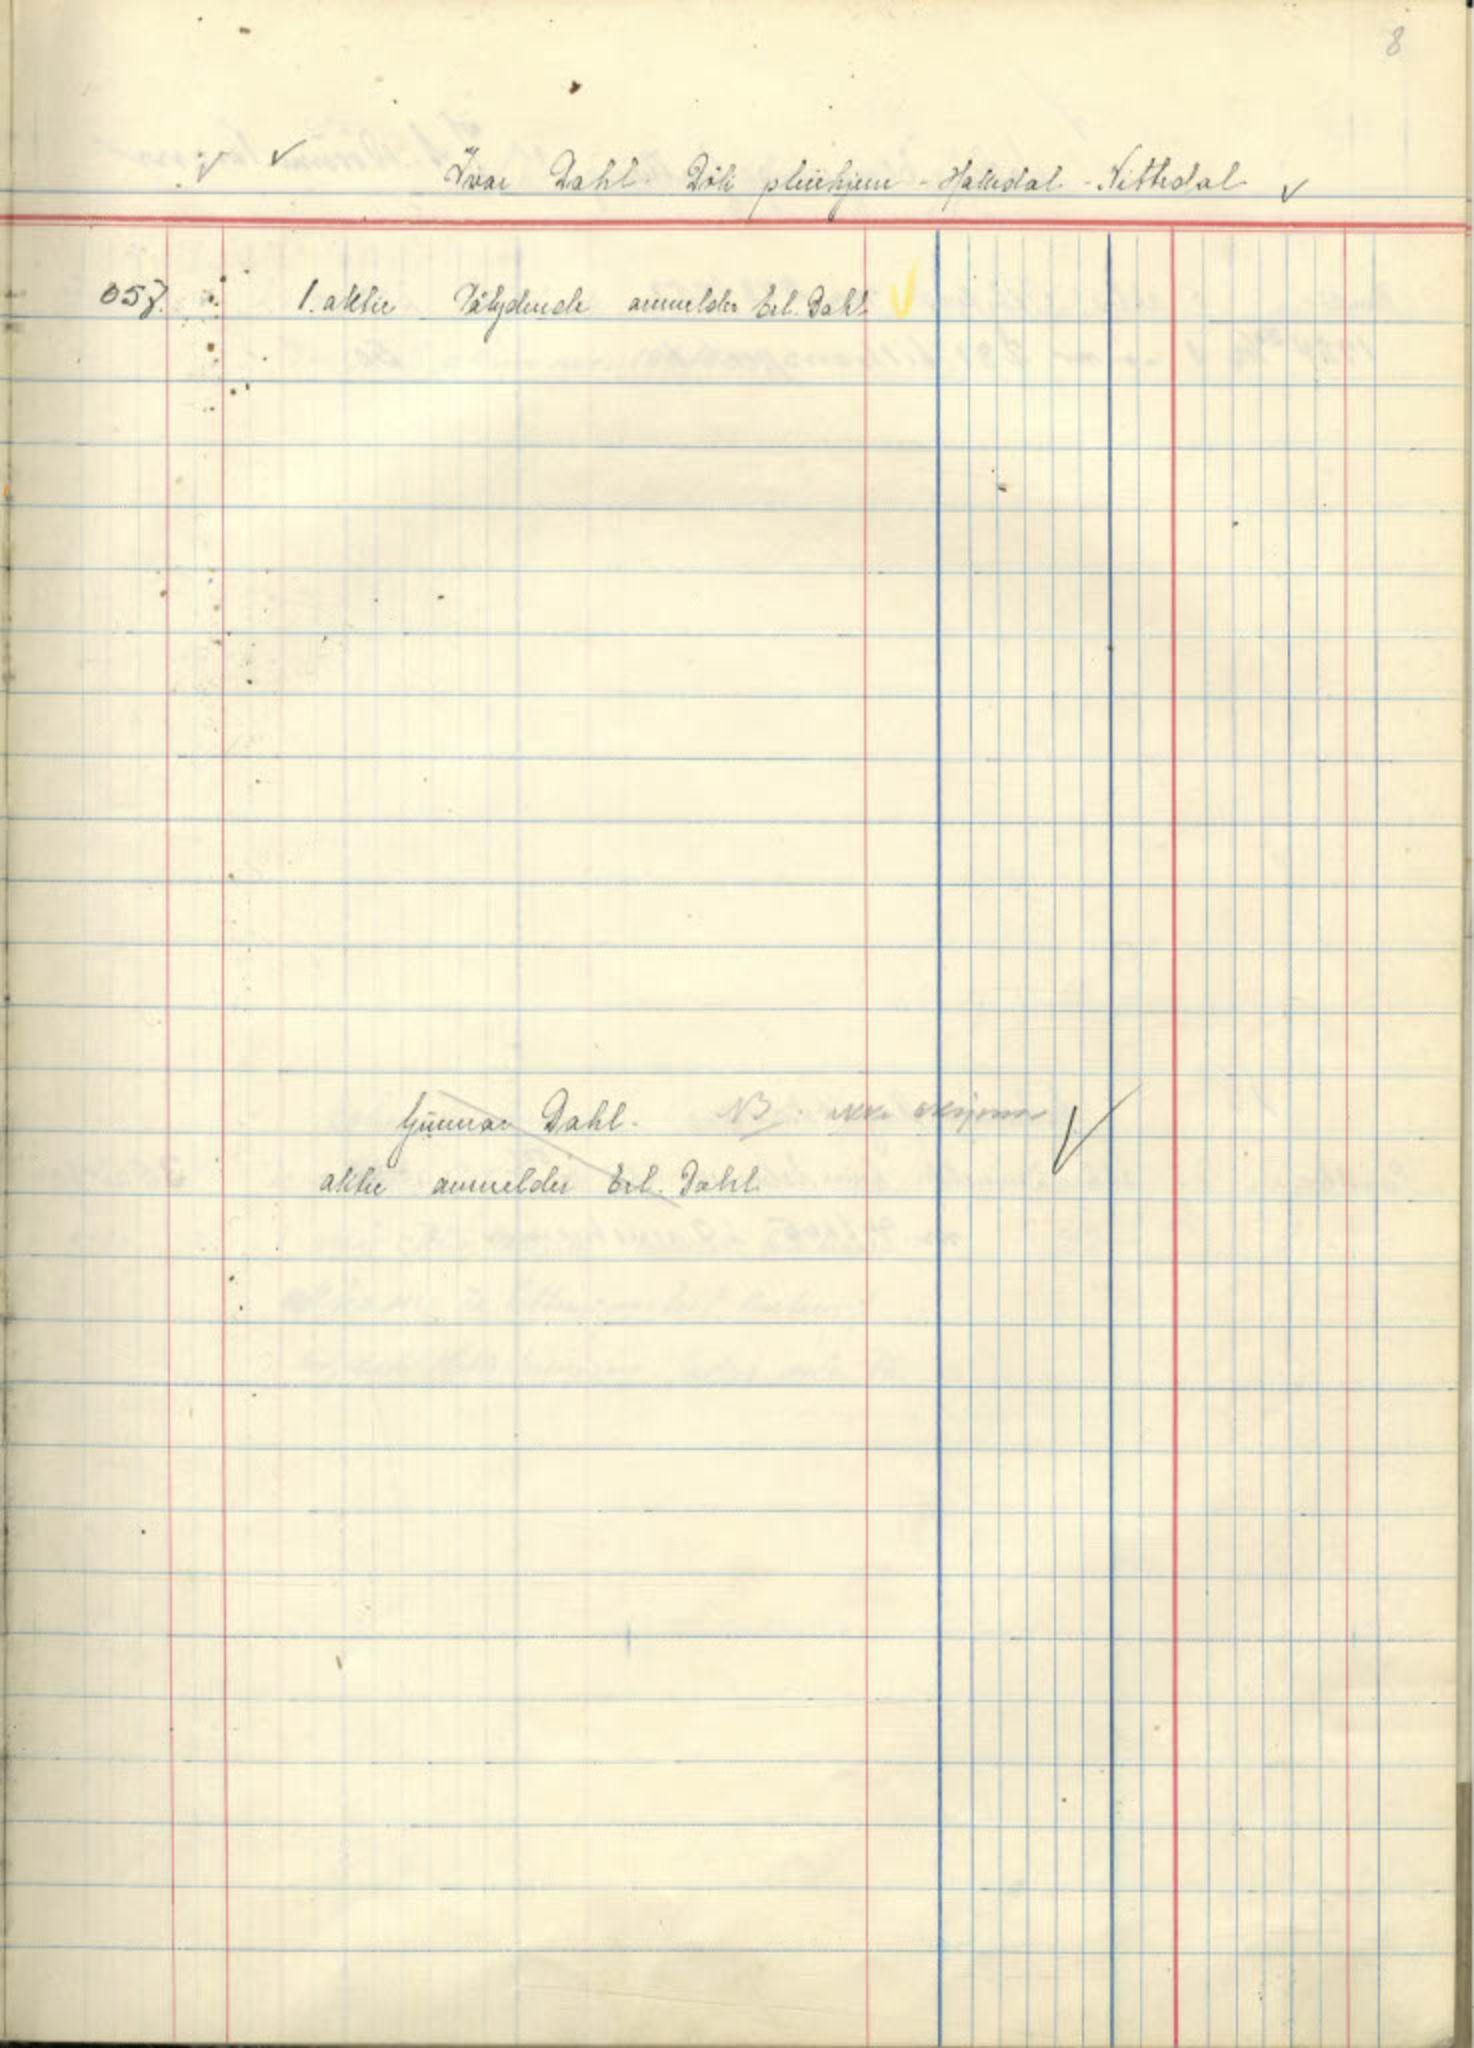 8
Ivar Dahl. Döli pleiehjem - Hakedal - Nittedal
057. 1. aktie Pålydende anmelder Erl. Dahl
Gunnar Dahl. NB. ikke aksjonær
aktie anmelder Erl. Dahl